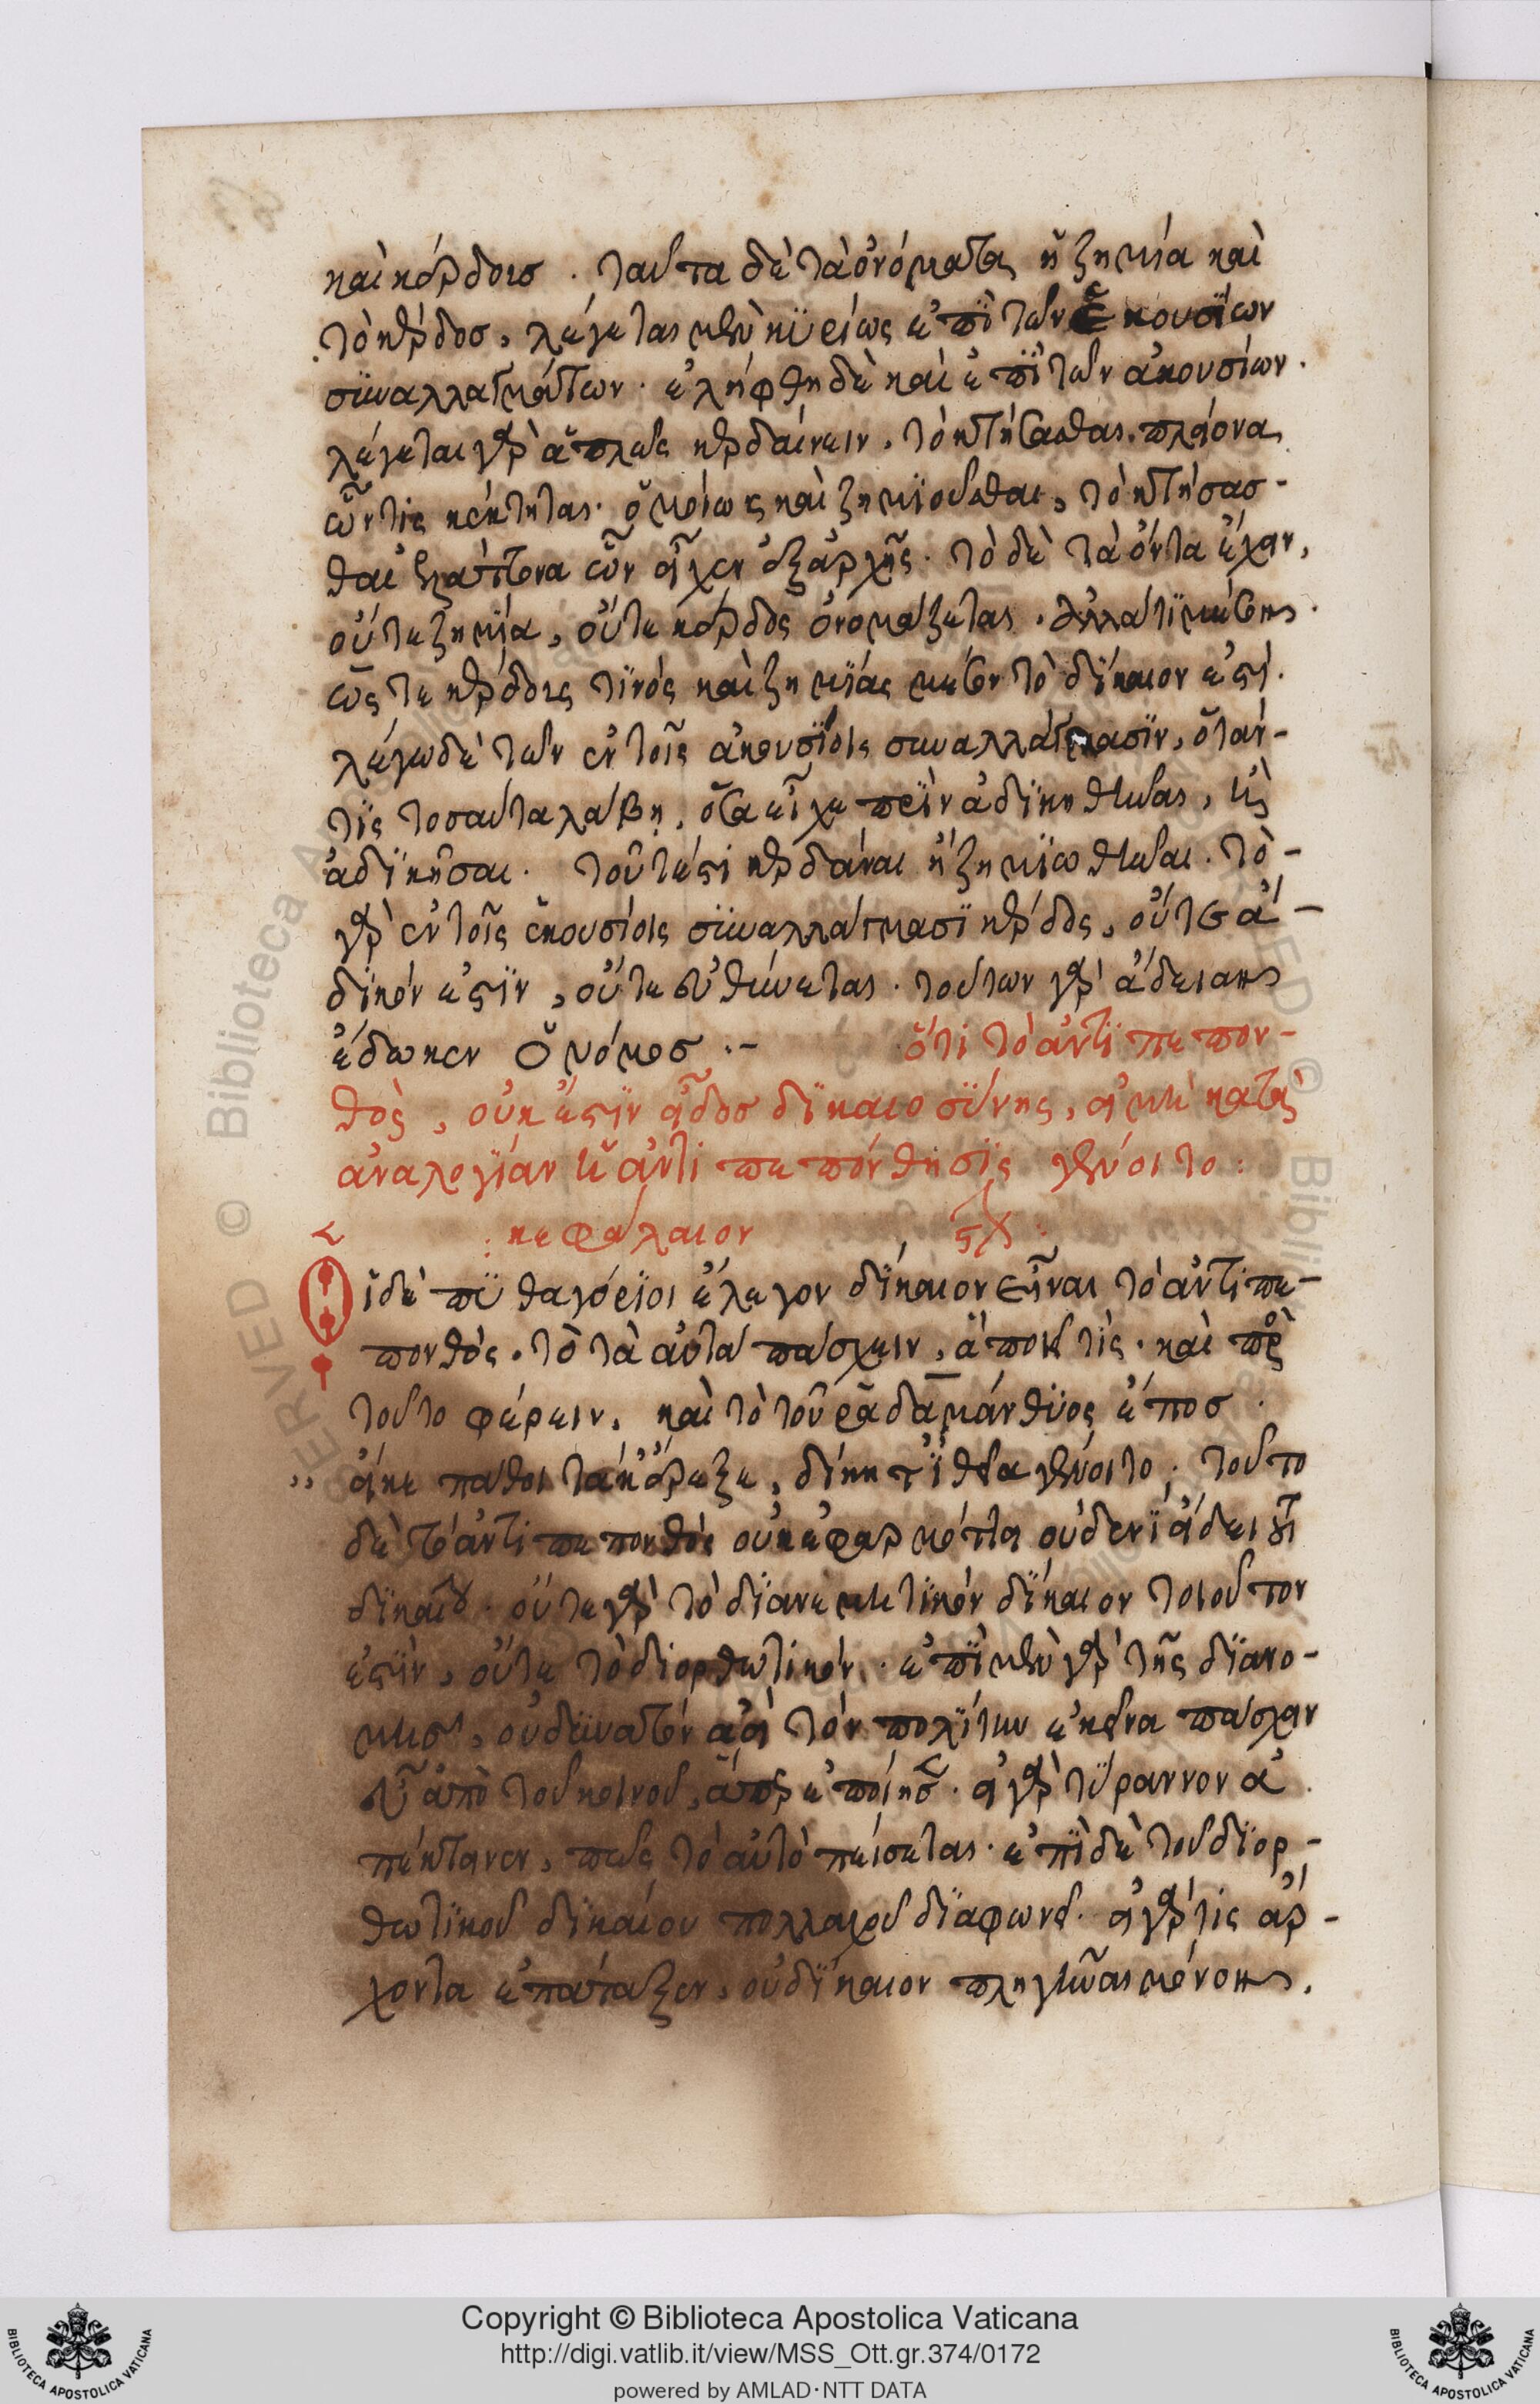 καὶ κέρδουσ. ταῦτα δὲ τὰ ὀνόματα, ἡ ζημία καὶ
τὸ κέρδοσ, λέγεται μὲν κϋρίως ἐπῒ τῶν ἑκουσΐων
σϋναλλαγμάτων. ἐλήφθη δὲ καὶ ἐπῒ τῶν ἀκουσίων.
λέγεται γὰρ ἁπλῶς κερδαίνειν, τὸ κτήσασθαι πλείονα
ὧν τις κέκτηται. ὁμοίως καὶ ζημϊοῦσθαι, τὸ κτήσασ-
θαι ἐλάττονα ὧν εἶχεν ἐξαρχῆς. τὸ δὲ τὰ ὄντα ἔχειν,
οὔτε ζημΐα, οὔτε κέρδος ὀνομάζεται. ἀλλά τϊ μέσον.
ὥς τε κέρδους τϊνός καὶ ζημΐας μέσον τὸ δΐκαιον ἐστί.
λέγω δὲ τῶν ἐν τοῖς ἀκουσΐοις συναλλάγμασϊν, ὅταν-
τϊς τοσαῦτα λάβη, ὅσα εἶχε πρῒν ἀδϊκηθῆναι, ἢ
ἀδϊκῆσαι. τοῦτέστι κερδάναι ἢ ζημϊωθῆναι. τὸ-
γὰρ ἐν τοῖς ἑκουσίοις σϋναλλάγμασϊ κέρδος, οὔτε ἄ-
δϊκόν ἐστϊν, οὔτε εὐθύνεται. τούτων γὰρ ἄδειαν
ἔδωκεν ὁ νόμοσ .-
ὅτι τὸ ἀντϊπεπον-
θὸς, οὐκ ἔστϊν εἶδοσ δϊκαιοσΰνης, εἰ μὴ κατὰ
ἀναλογΐαν ἡ ἀντιπεπόνθησϊς γένοιτο :
: κεφάλαιον ϛον :
Οἱ δὲ πϋθαγόρϊοι ἔλεγον δΐκαιον εἶναι τὸ ἀντιπε-
πονθός. τὸ τὰ αὐτὰ πάσχειν, ἃ ποιεῖ τὶς. καὶ πρὸς
τοῦτο φέρειν, καὶ τὸ τοῦ ῥαδαμάνθϋος ἔποσ.
,, εἴκε πάθοι τά κ' ἔρεξε, δίκη τ' ϊθεῖα γένοιτο; τοῦτο
δὲ τὸ ἀντιπεπονθός οὐκ ἐφαρμόττει οὐδενῒ εἴδει τοῦ
δϊκαίου. οὔτε γὰρ τὸ δϊανεμητϊκόν δΐκαιον τοιοῦτον
ἐστϊν, οὔτε τὸ διορθωτικόν. ἐπῒ μὲν γὰρ τῆς δϊανο-
μῆσ, οὐ δϋνατόν ἀεὶ τόν πολΐτην ἐκεῖνα πάσχειν
εὖ ἀπὸ τοῦ κοινοῦ, ἅπερ ἐποίησε. εἰ γὰρ τΰραννον ἀ
πέκτανεν, πῶς τὸ αὐτὸ πείσεται. ἐπῒ δὲ τοῦ δϊορ-
θωτϊκοῦ δϊκαίου πολλαχοῦ δϊαφωνεῖ. εἰ γάρ τις ἄρ-
χοντα ἐπάταξεν, οὐ δΐκαιον πληγῆναι μόνον,